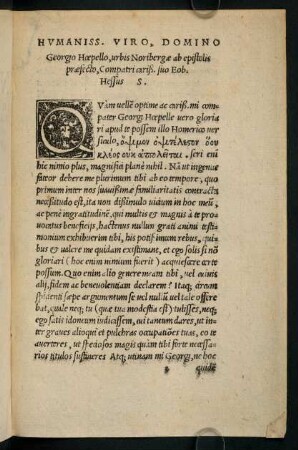 HVMANISS. VIRO, DOMINO
Georgio Hœpello, urbis Noribergæ ab epistolis
præfecto, Compatri cariß. suo Eob.
Hessus S.
QVam uellē optime ac cariß. mi com
pater Georgi Hœpelle uero gloria
ri apud te possem illo Homerico uer
siculo,
κλέος οὐκ ἀπολεῖται. seri eni
hic nimio plus, magnifica planè nihil. Nā ut ingenue
fatear debere me plurimum tibi ab eo tempore, quo
primum inter nos suauissimæ familiaritatis contracta
necessitudo est, ita non dissimulo uidum in hoc meū,
ac pene ingratitudinē, qui multis & magnis à te pro
uocatus beneficijs, hactenus nullum grati animi testi=
monium exhibuerim tibi, his potißimum rebus, quibus
& ualere me quidam existimant, et ego solis si nō
gloriari (hoc enim nimium fuerit) acquiescere certè
possum. Quo enim alio genere meam tibi, uel cuiuis
alij, fidem ac beneuolentiam declarem? Itaq; dum
spedanti sæpe argumentum se uel nullū uel tale offire
bat, quale neq; tu (quæ tua modestia est) tulisses, neq;
ego satis idoneum iudicassem, cui tantum dares, ut in
ter graues alioqui et pulchras occupatiões tuas, eo te
auerteres, ut speciosos magis quàm tibi fortè necessa=
rios titulos sustineres Atq; utinam mi Georgi, ne hoc
quidē